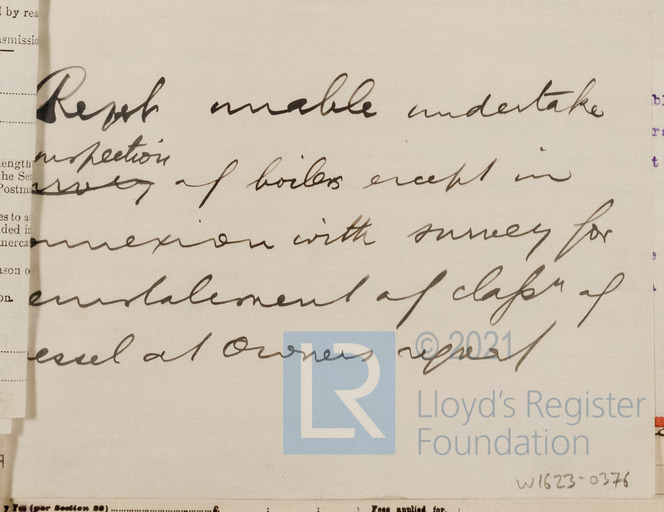 l by rea
smissio
Regret unable undertake
inspection
survey of boilers except in
nnexion with survey for
einstatement of classn of
essel at Owners request
ength
he Ser
Postm
es to a
ded i
merca
ason o
on.
© 2021
LR
Lloyd's Register
Foundation
W1623-0376
y Fee (per Section 28) £
Fees applied for.